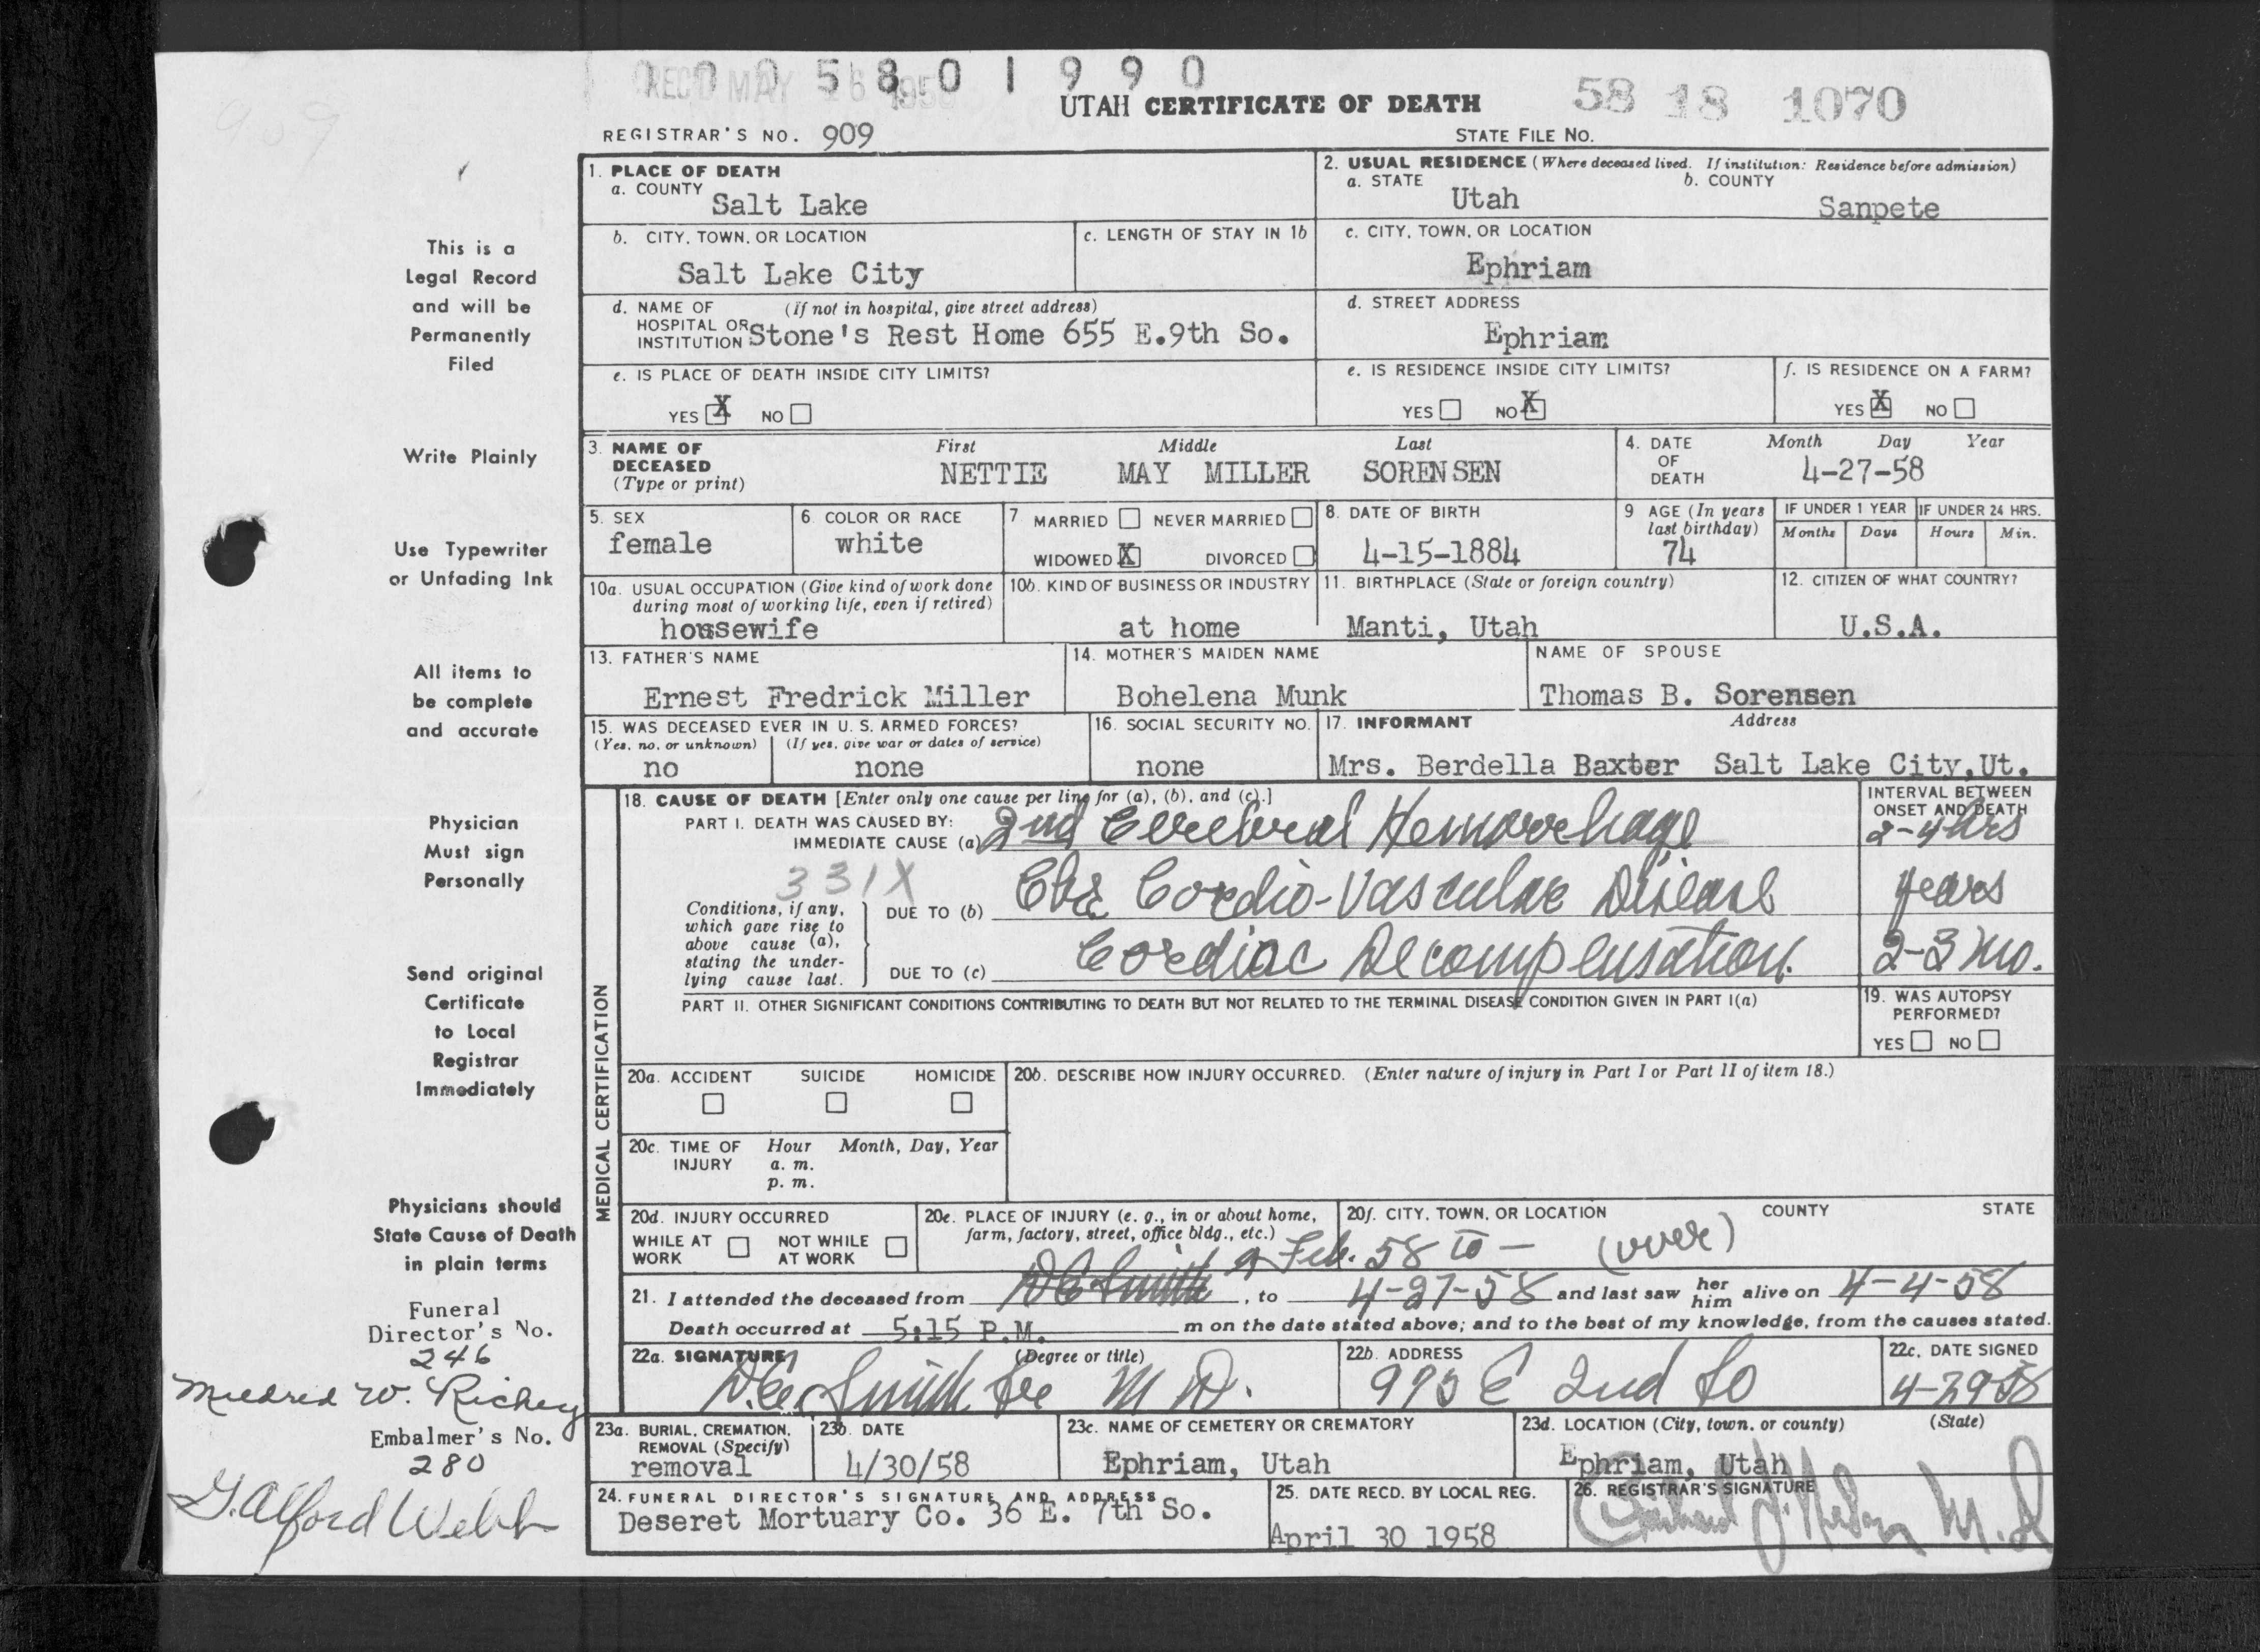 0 0 0 5 8 0 1 9 9 0
REC'D MAY 16 1958
UTAH CERTIFICATE OF DEATH
58 18 1070
909
REGISTRAR'S NO. 909
STATE FILE NO.
1. PLACE OF DEATH
a. COUNTY
Salt Lake
2. USUAL RESIDENCE (Where deceased lived. If institution: Residence before admission)
a. STATE
Utah
b. COUNTY
Sanpete
b. CITY, TOWN, OR LOCATION
Salt Lake City
c. LENGTH OF STAY IN 1b
c. CITY, TOWN, OR LOCATION
Ephriam
d. NAME OF (If not in hospital, give street address)
HOSPITAL OR
INSTITUTION Stone's Rest Home 655 E.9th So.
d. STREET ADDRESS
Ephriam
e. IS PLACE OF DEATH INSIDE CITY LIMITS?
YES X NO
e. IS RESIDENCE INSIDE CITY LIMITS?
YES NO X
f. IS RESIDENCE ON A FARM?
YES X NO
3. NAME OF
DECEASED
(Type or print)
First Middle Last
NETTIE MAY MILLER SORENSEN
4. DATE
OF
DEATH
Month Day Year
4-27-58
5. SEX
female
6. COLOR OR RACE
white
7. MARRIED NEVER MARRIED
WIDOWED X DIVORCED
8. DATE OF BIRTH
4-15-1884
9 AGE (In years
last birthday)
74
IF UNDER 1 YEAR
Months Days
IF UNDER 24 HRS.
Hours Min.
10a. USUAL OCCUPATION (Give kind of work done
during most of working life, even if retired)
housewife
10b. KIND OF BUSINESS OR INDUSTRY
at home
11. BIRTHPLACE (State or foreign country)
Manti, Utah
12. CITIZEN OF WHAT COUNTRY?
U.S.A.
13. FATHER'S NAME
Ernest Fredrick Miller
14. MOTHER'S MAIDEN NAME
Bohelena Munk
NAME OF SPOUSE
Thomas B. Sorensen
15. WAS DECEASED EVER IN U. S. ARMED FORCES?
(Yes, no, or unknown) (If yes, give war or dates of service)
no none
16. SOCIAL SECURITY NO.
none
17. INFORMANT Address
Mrs. Berdella Baxter Salt Lake City,Ut.
MEDICAL CERTIFICATION
18. CAUSE OF DEATH [Enter only one cause per line for (a), (b), and (c).]
PART I. DEATH WAS CAUSED BY:
IMMEDIATE CAUSE (a) 2nd Cerebral Hemorrhage
INTERVAL BETWEEN
ONSET AND DEATH
2-4 hrs
331X
Conditions, if any,
which gave rise to
above cause (a),
stating the under-
lying cause last.
DUE TO (b) Chr Cardio-Vascular Disease
years
DUE TO (c) Cardiac Decompensation.
2-3 mo.
PART II. OTHER SIGNIFICANT CONDITIONS CONTRIBUTING TO DEATH BUT NOT RELATED TO THE TERMINAL DISEASE CONDITION GIVEN IN PART I(a)
19. WAS AUTOPSY
PERFORMED?
YES NO
20a. ACCIDENT SUICIDE HOMICIDE
20b. DESCRIBE HOW INJURY OCCURRED. (Enter nature of injury in Part I or Part II of item 18.)
20c. TIME OF
INJURY
Hour Month, Day, Year
a. m.
p. m.
20d. INJURY OCCURRED
WHILE AT
WORK
NOT WHILE
AT WORK
20e. PLACE OF INJURY (e. g., in or about home,
farm, factory, street, office bldg., etc.)
20f. CITY, TOWN, OR LOCATION COUNTY STATE
Feb. 58 to — (over)
21. I attended the deceased from , to 4-27-58 and last saw her him alive on 4-4-58
Death occurred at 5:15 P.M. m on the date stated above; and to the best of my knowledge, from the causes stated.
22a. SIGNATURE (Degree or title)
Smith M D.
22b. ADDRESS
995 E 2nd So
22c. DATE SIGNED
4-29-58
23a. BURIAL, CREMATION,
REMOVAL (Specify)
removal
23b. DATE
4/30/58
23c. NAME OF CEMETERY OR CREMATORY
Ephriam, Utah
23d. LOCATION (City, town, or county) (State)
Ephriam, Utah
24. FUNERAL DIRECTOR'S SIGNATURE AND ADDRESS
Deseret Mortuary Co. 36 E. 7th So.
25. DATE RECD. BY LOCAL REG.
April 30 1958
26. REGISTRAR'S SIGNATURE
M.D
This is a
Legal Record
and will be
Permanently
Filed
Write Plainly
Use Typewriter
or Unfading Ink
All items to
be complete
and accurate
Physician
Must sign
Personally
Send original
Certificate
to Local
Registrar
Immediately
Physicians should
State Cause of Death
in plain terms
Funeral
Director's No.
246
Mildred W. Richey
Embalmer's No.
280
G. Alford Webb